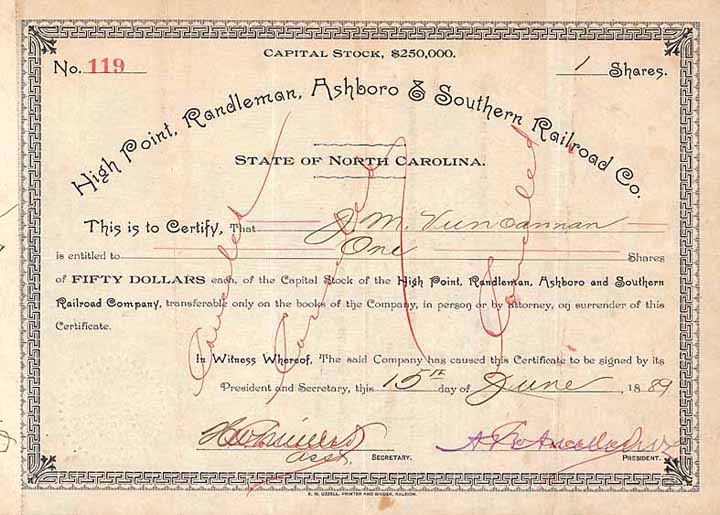 CAPITAL STOCK, $250,000.
No. 119 1 SHARES.
High Point, Randleman, Ashboro & Southern Railroad Co.
STATE OF NORTH CAROLINA.
This is to Certify, That J. M. Vuncannan
is entitled to One Shares
of FIFTY DOLLARS each, of the Capital Stock of the High Point, Randleman, Ashboro and Southern
Railroad Company, transferable only on the books of the Company, in person or by attorney, on surrender of this
Certificate.
In Witness Whereof, The said Company has caused this Certificate to be signed by its
President and Secretary, this 15th day of June, 1889
Asst. SECRETARY. PRESIDENT.
E. M. UZZELL, PRINTER AND BINDER, RALEIGH.
Canceled
Canceled
Canceled